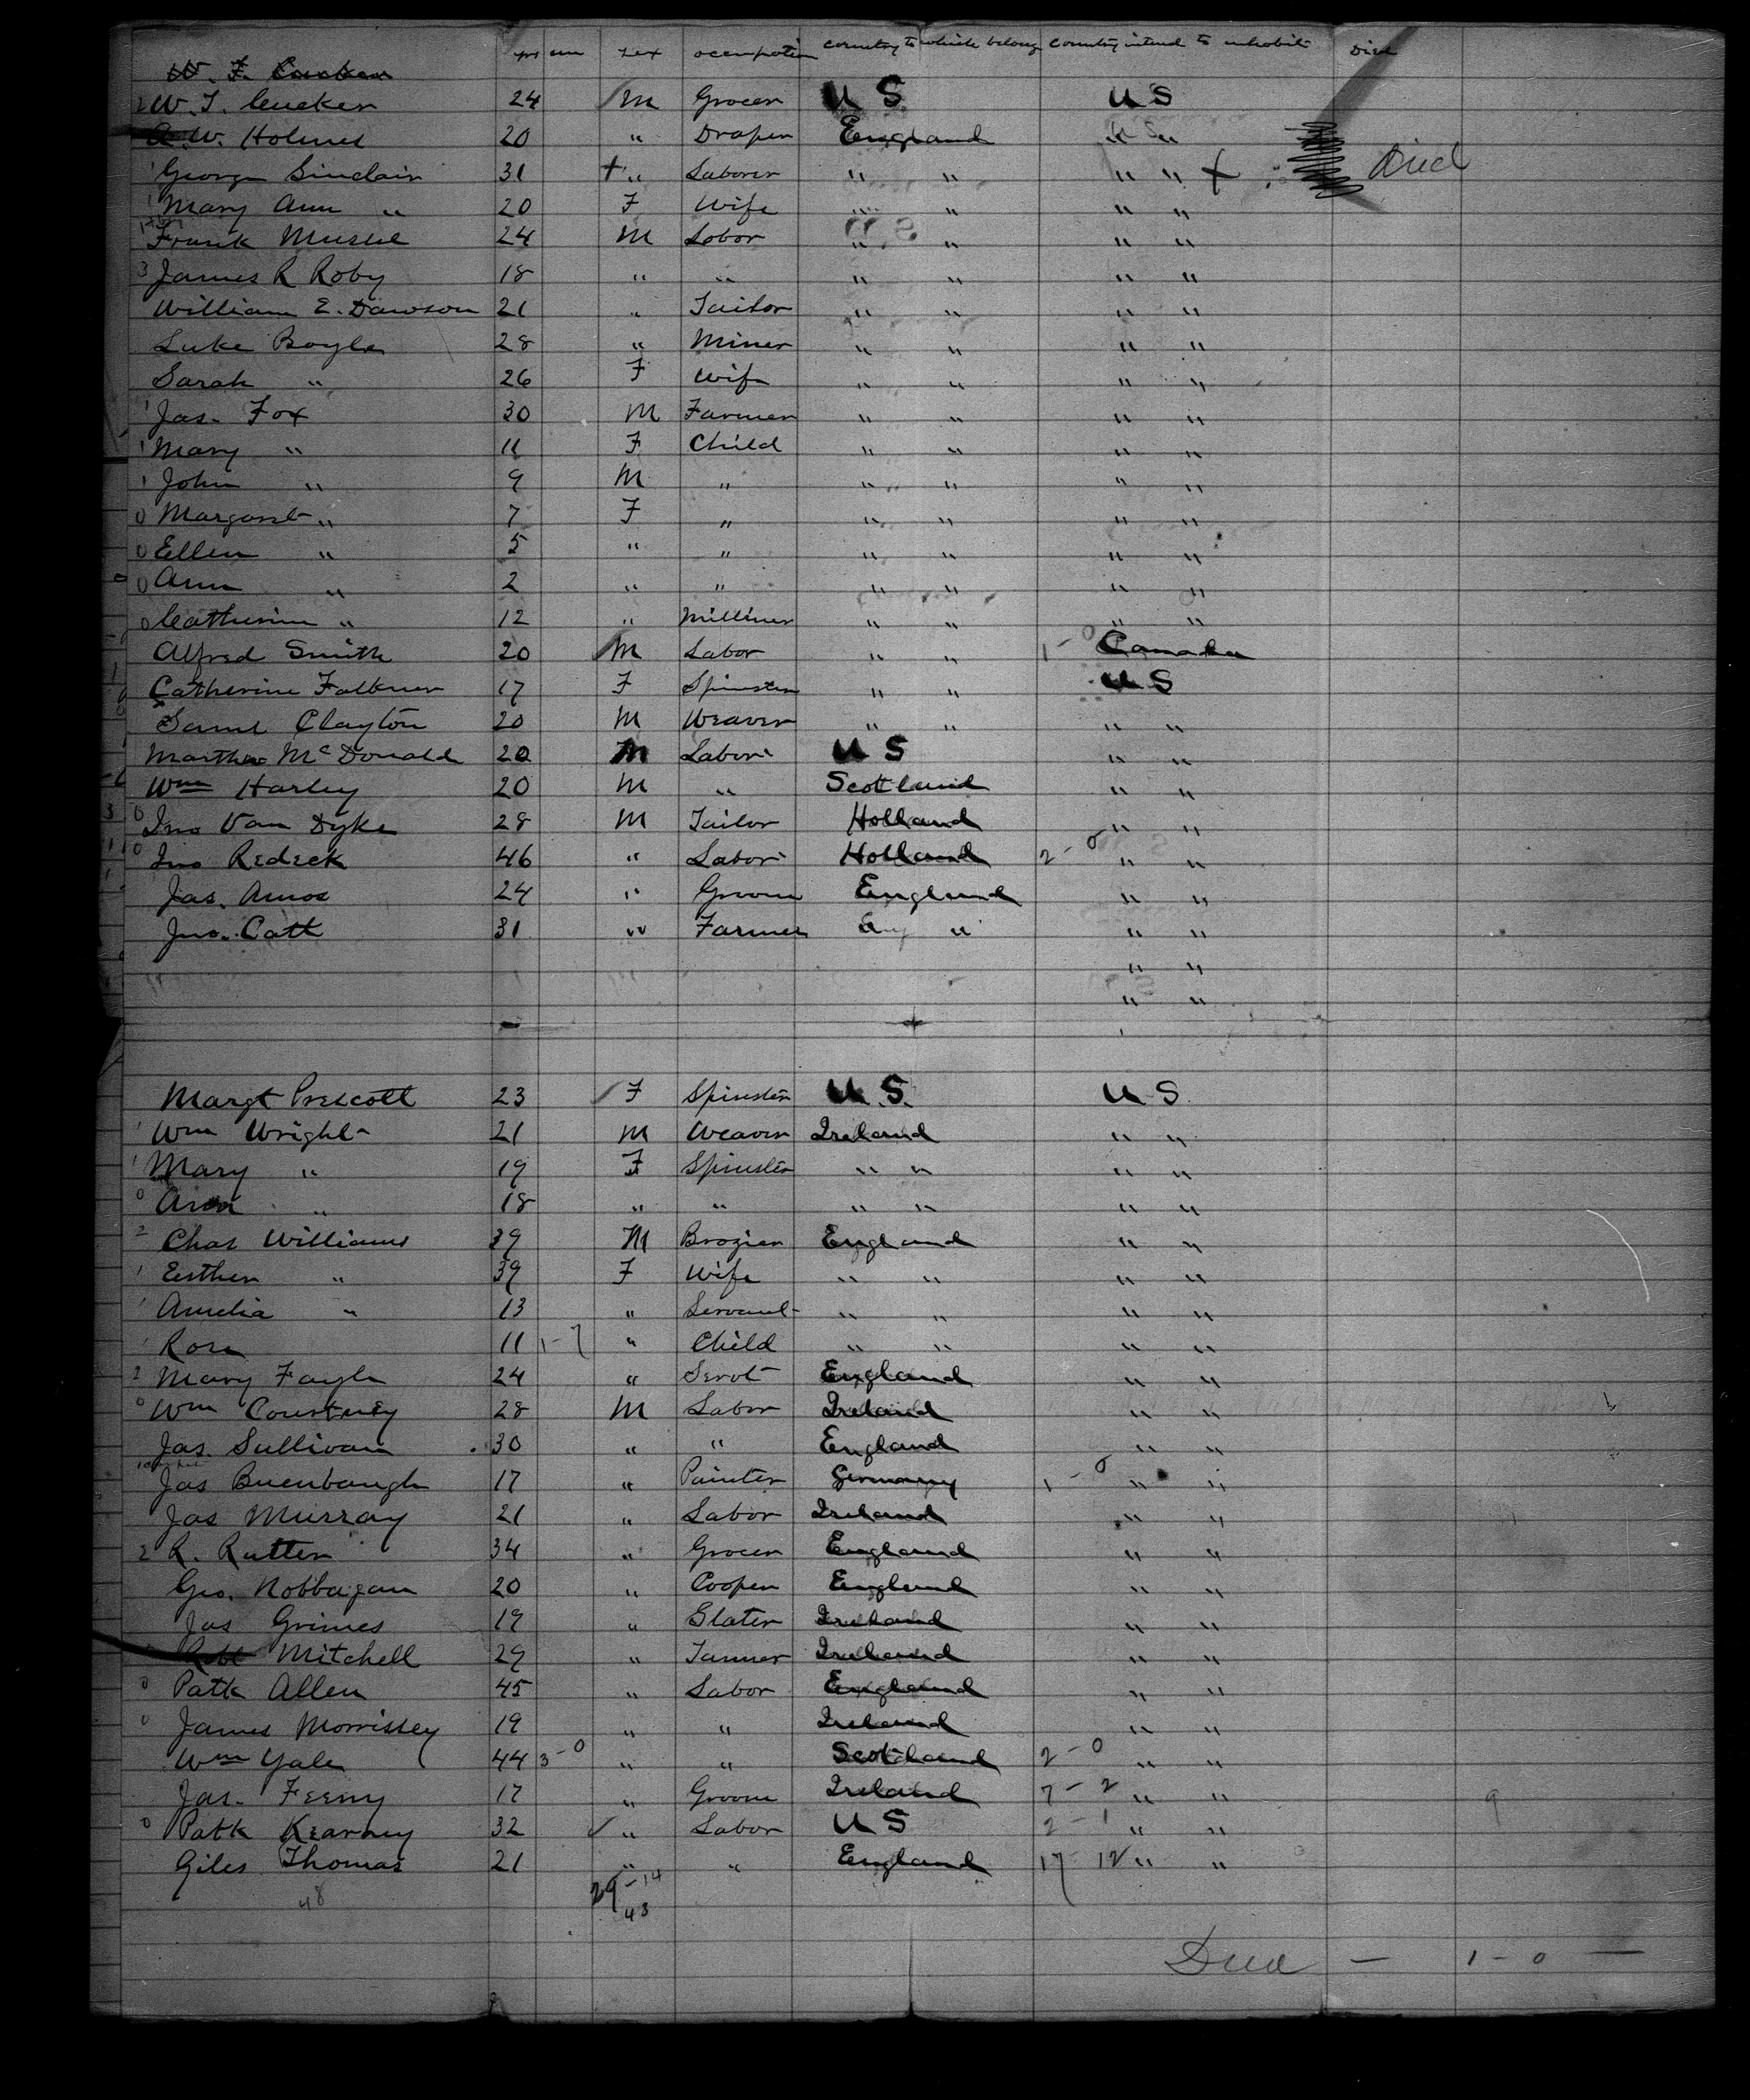 yrs mn sex occupation country to which belong country intend to inhabit Died
W. F. Cucker
2 W. F. Cucker 24 M Grocer U S U S
W. Holmes 20 " Draper England " "
1 George Sinclair 31 + " Laborer " " " " + Died
1 Mary Ann " 20 F Wife " " " "
Frank 24 M Labor " " " "
3 James R Roby 18 " " " " " "
William E. Dawson 21 " Tailor " " " "
Luke Boyle 28 " Miner " " " "
Sarah " 26 F Wife " " " "
1 Jas. Fox 30 M Farmer " " " "
1 Mary " 11 F Child " " " "
1 John " 9 M " " " " "
0 Margaret " 7 F " " " " "
0 Ellen " 5 " " " " " "
0 Ann " 2 " " " " " "
0 Catherine " 12 " Milliner " " " "
Alfred Smith 20 M Labor " " 1 - 0 Canada
Catherine Falkner 17 F Spinster " " U S
Saml Clayton 20 M Weaver " " " "
Martha McDonald 20 M Labor U S " "
Wm Harley 20 M " Scotland " "
0 Jno Van Dyke 28 M Tailor Holland " "
0 Jno Redeck 46 " Labor Holland 2 - 0 " "
Jas. Amos 24 " Groom England " "
Jno. Catt 31 " Farmer Eng " " "
" "
" "
Margt Prescott 23 F Spinster U.S. U S
1 Wm Wright 21 M Weaver Ireland " "
1 Mary " 19 F Spinster " " " "
0 " 18 " " " " " "
2 Chas Williams 39 M Brazier England " "
1 Esther " 39 F Wife " " " "
1 Amelia " 13 " Servant " " " "
1 Rose 11 1-7 " Child " " " "
2 Mary Fayle 24 " Servt England " "
0 Wm Courtney 28 M Labor Ireland " "
Jas. Sullivan 30 " " England " "
Jas Buenbaugh 17 " Painter Germany 1 - 0 " "
Jas Murray 21 " Labor Ireland " "
2 R. Rutter 34 " Grocer England " "
Geo. Nobbagan 20 " Cooper England " "
Jas Grimes 19 " Slater Ireland " "
Robt Mitchell 29 " Tanner Ireland " "
0 Patk Allen 45 " Labor England " "
0 James Morrissey 19 " " Ireland " "
Wm Yale 44 3-0 " " Scotland 2 - 0 " "
Jas. Feeny 17 " Groom Ireland 7 - 2 " " 9
0 Patk Kearney 32 " Labor U S 2 - 1 " "
Giles Thomas 21 " " England 17 12 " "
48 29-14
43
Died — 1 - 0 —